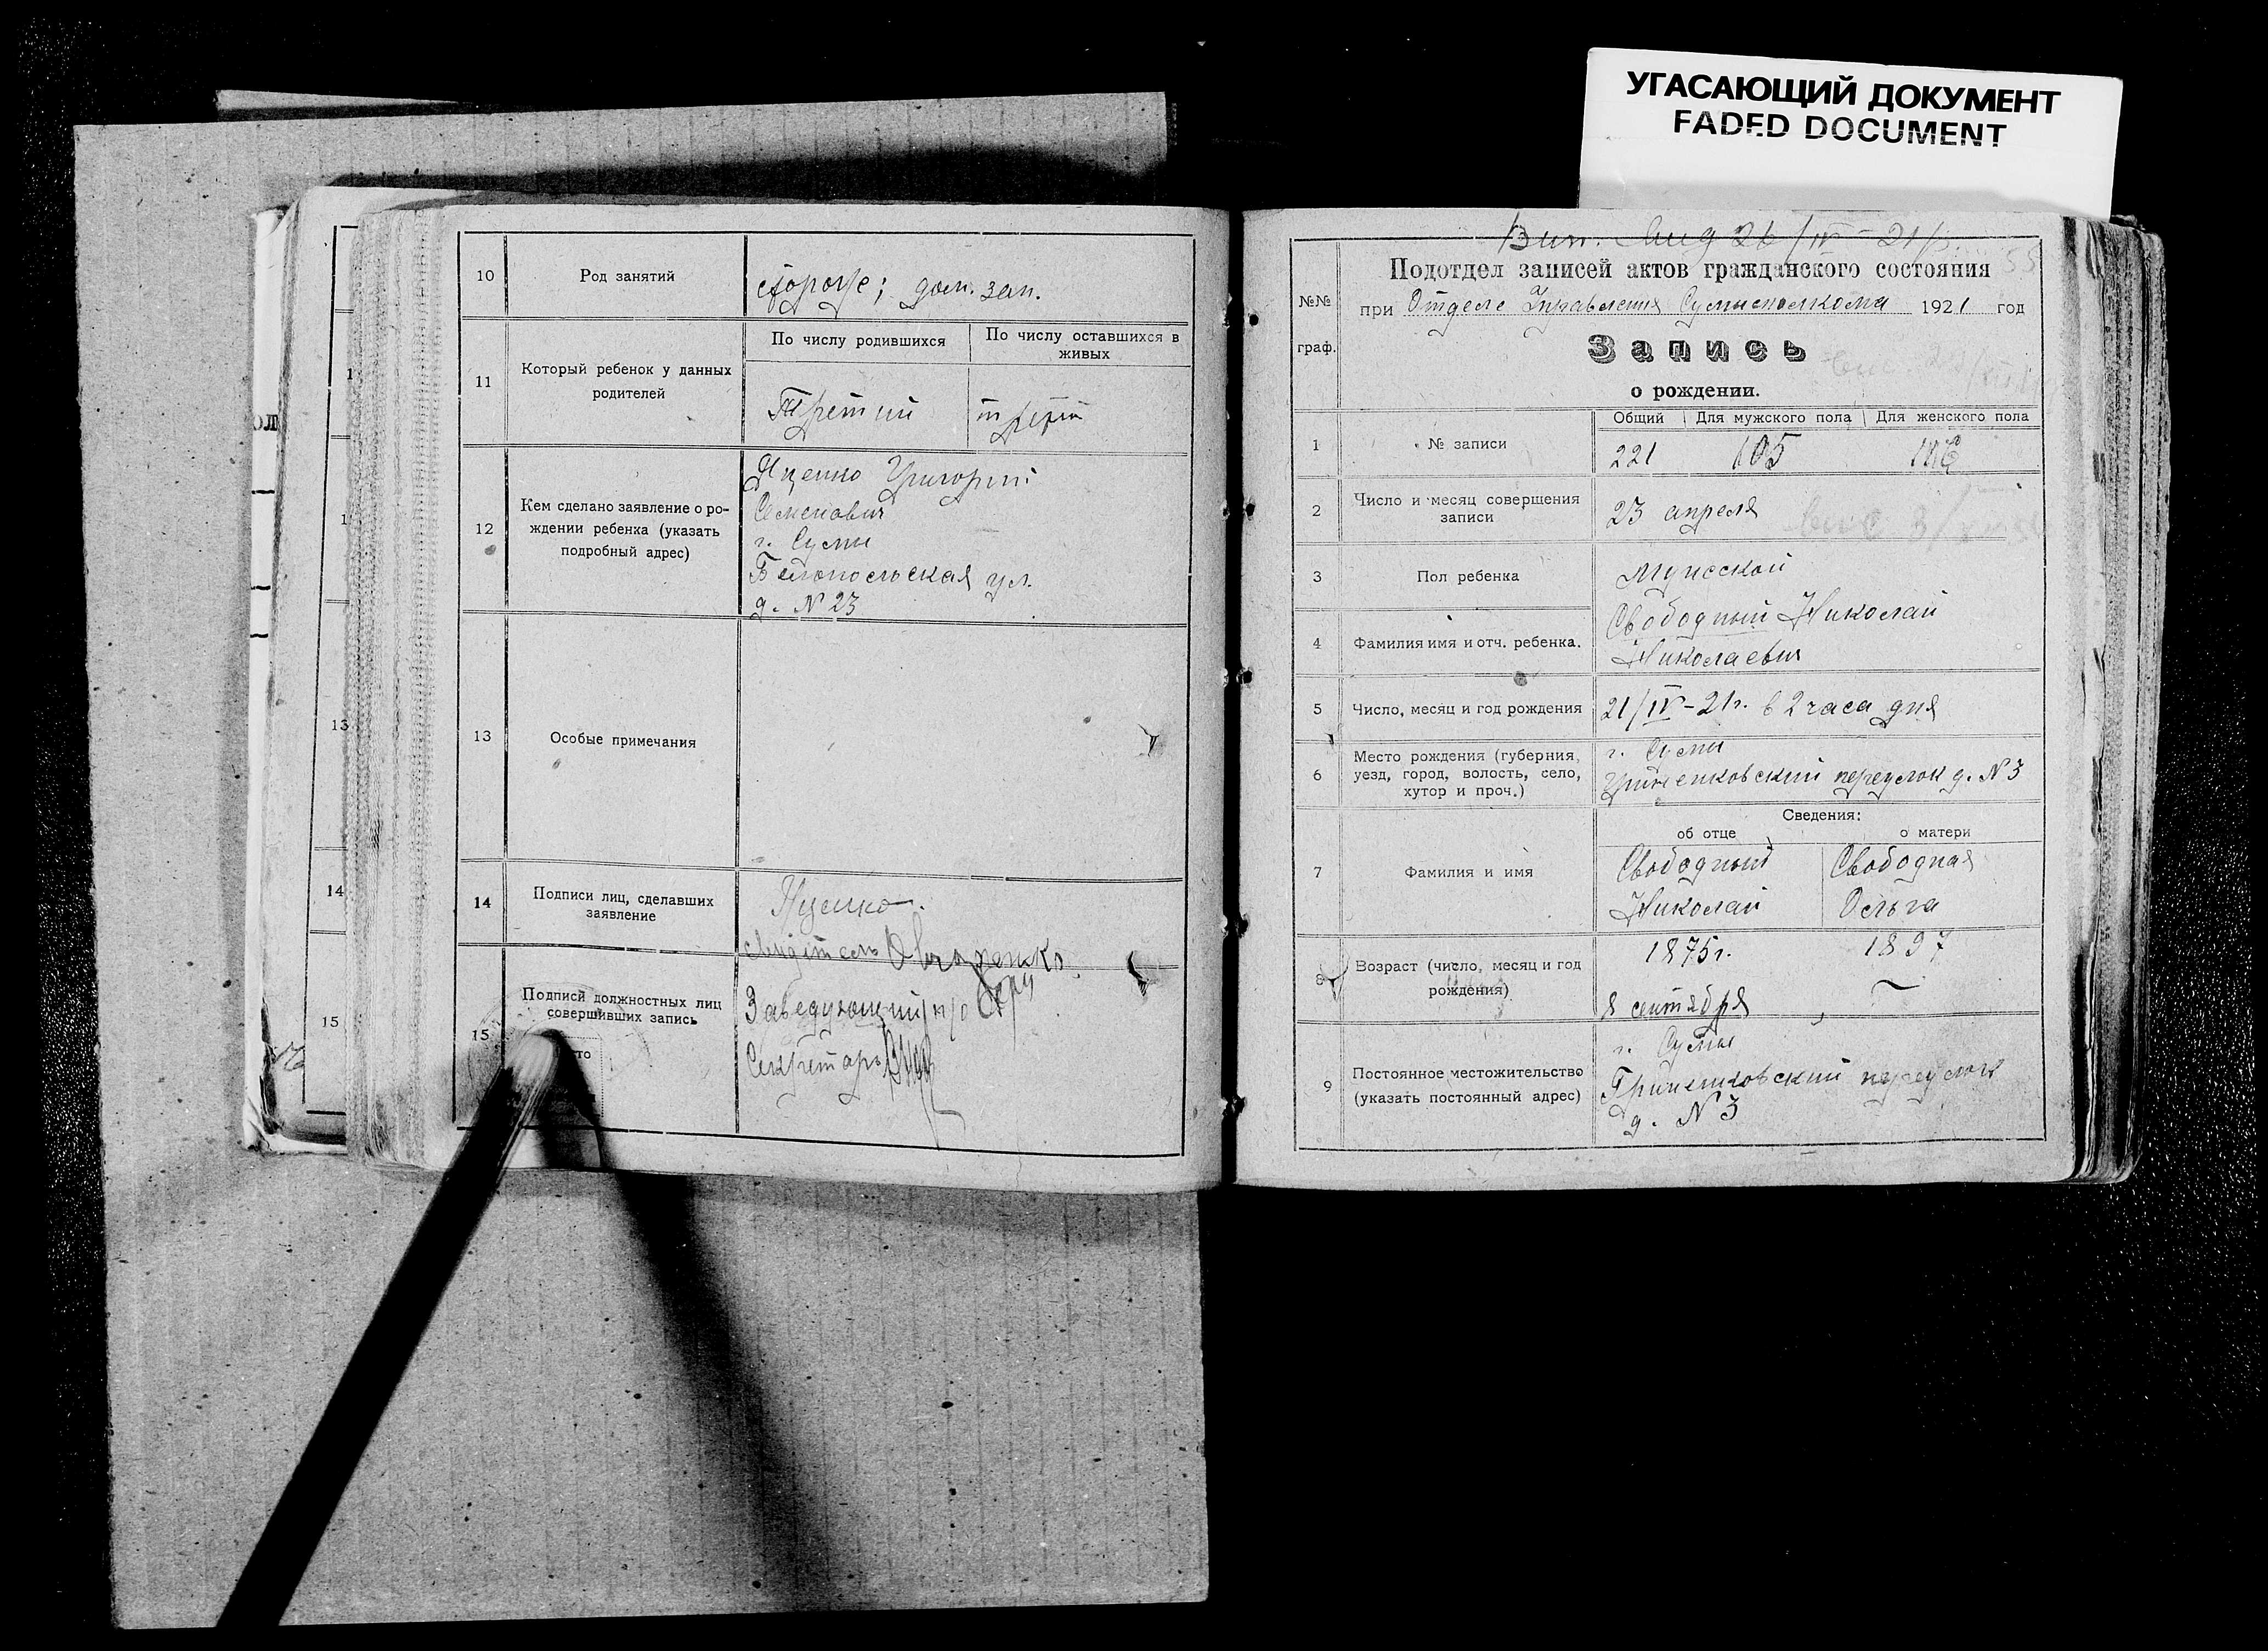 УГАСАЮЩИЙ ДОКУМЕНТ
FADED DOCUMENT
10
Род занятий
сторож; дом. зан.
11
Который ребенок у данных
родителей
По числу родившихся
По числу оставшихся в
живых
Третий
третий
12
Кем сделано заявление о ро-
ждении ребенка (указать
подробный адрес)
Яценко Григорий
Семенович
г. Сумы
Белопольская ул.
д. № 23
13
Особые примечания
14
Подписи лиц, сделавших
заявление
Яценко.
свидетель Овчаренко
15
Подписи должностных лиц
совершивших запись
Заведующий п/о
Секретарь
13
14
15
26/IV-21
55
Подотдел записей актов гражданского состояния
№№
граф.
при Отделе Управления Сумисполкома 1921 год
Запись
о рождении.
1
№ записи
Общий
Для мужского пола
Для женского пола
221
105
116
2
Число и месяц совершения
записи
23 апреля
3
Пол ребенка
Мужской
4
Фамилия имя и отч. ребенка.
Свободный Николай
Николаевич
5
Число, месяц и год рождения
21/IV-21г. в 2 часа дня
6
Место рождения (губерния,
уезд, город, волость, село,
хутор и проч.)
г. Сумы
Гриненковский переулок д. № 3
Сведения:
об отце
о матери
7
Фамилия и имя
Свободный
Николай
Свободная
Ольга
8
Возраст (число, месяц и год
рождения)
1875г.
8 сентября
1897
9
Постоянное местожительство
(указать постоянный адрес)
г. Сумы
Гриненковский переулок
д. № 3